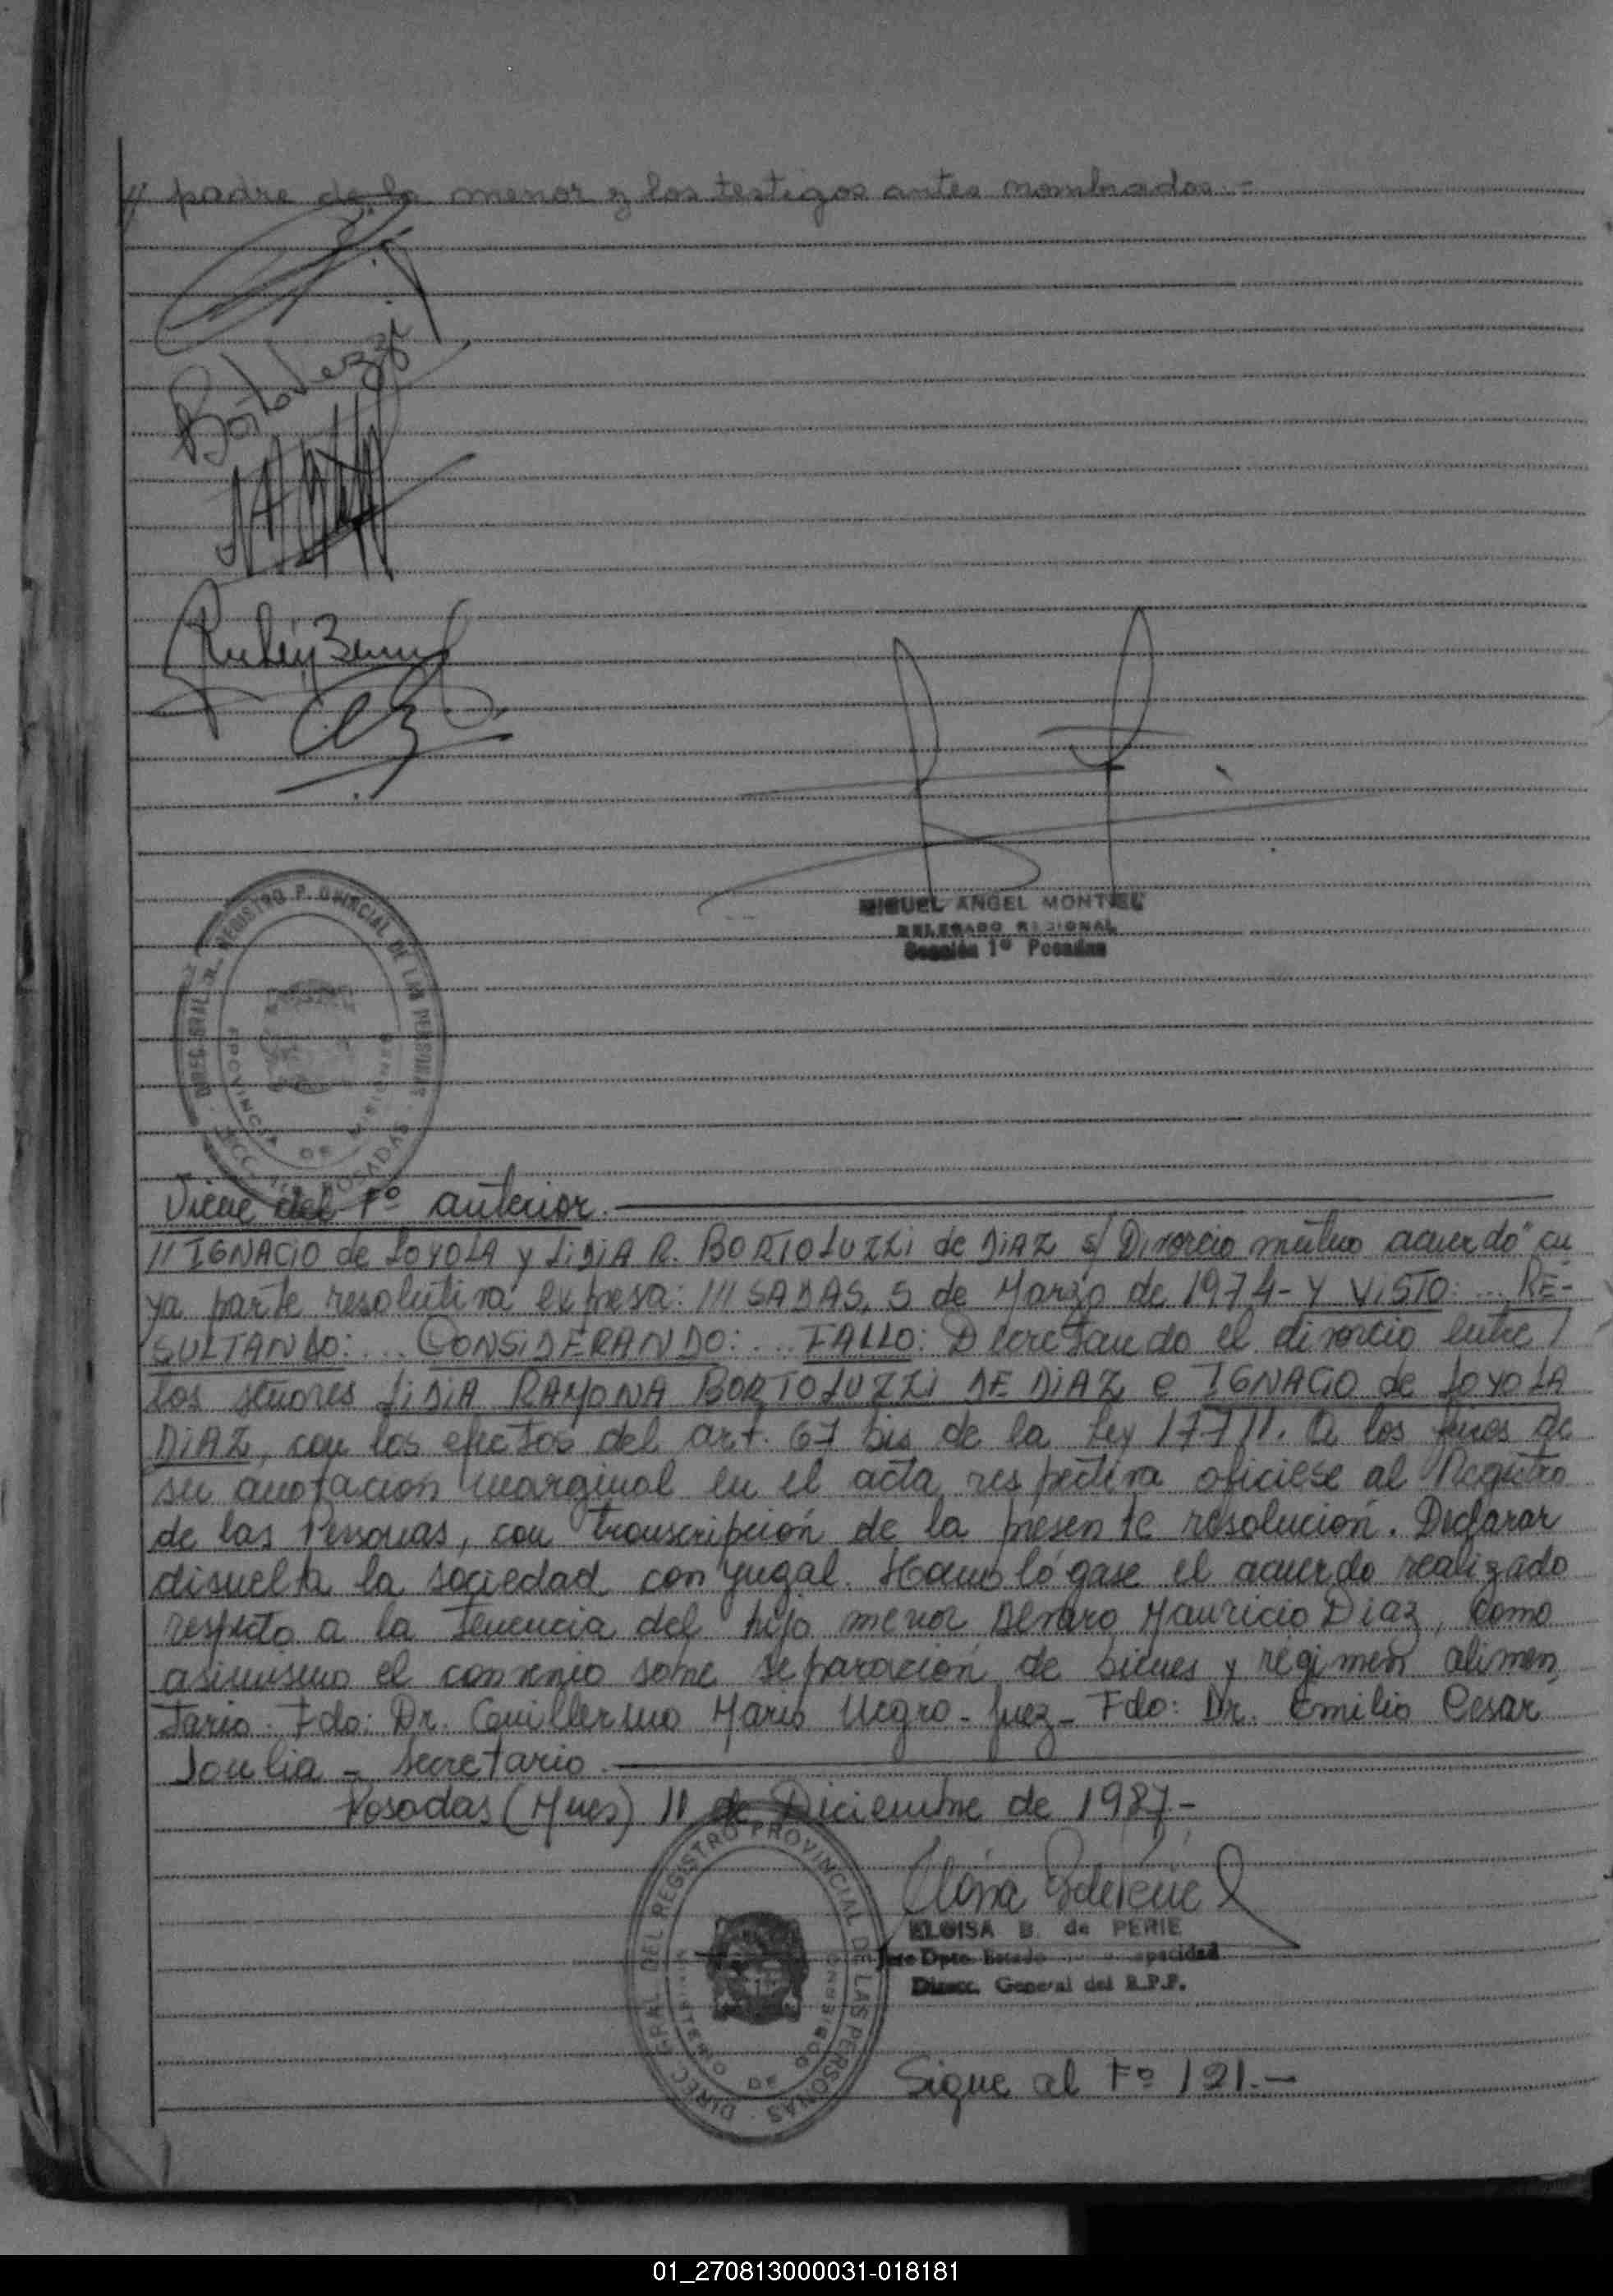 // padre de la menor y los testigos antes nombrados.-
Bortoluzzi
Rubén
MIGUEL ANGEL MONTIEL
DELEGADO REGIONAL
Sección 1ª Posadas
REGISTRO PROVINCIAL DE LAS PERSONAS
PROVINCIA DE MISIONES
Viene del Fº anterior.
// IGNACIO de LOYOLA y LIDIA R. BORTOLUZZI de DIAZ s/ Divorcio mutuo acuerdo" cu
ya parte resolutiva expresa: /// SADAS, 5 de Marzo de 1974- Y VISTO: ... RE-
SULTANDO: ... CONSIDERANDO: ... FALLO: Decretando el divorcio entre /
los señores LIDIA RAMONA BORTOLUZZI DE DIAZ e IGNACIO de LOYOLA
DIAZ, con los efectos del art. 67 bis de la Ley 17711. A los fines de
su anotacion marginal en el acta respectiva oficiese al Registro
de las Personas, con transcripción de la presente resolución. Declarar
disuelta la sociedad conyugal. Homológase el acuerdo realizado
respecto a la tenencia del hijo menor Mauricio Diaz, como
asimismo el convenio sobre separación de bienes y régimen alimen
tario. Fdo: Dr. Guillermo Mario Negro - Juez - Fdo: Dr. Emilio Cesar
Joulia - secretario.
Posadas (Mnes) 11 de Diciembre de 1987.-
DIREC. GRAL. DEL REGISTRO PROVINCIAL DE LAS PERSONAS
ELOISA B. de PERIE
Jefe Dpto. Estado apacidad
Direcc. General del R.P.P.
Sigue al Fº 121.-
01_270813000031-018181